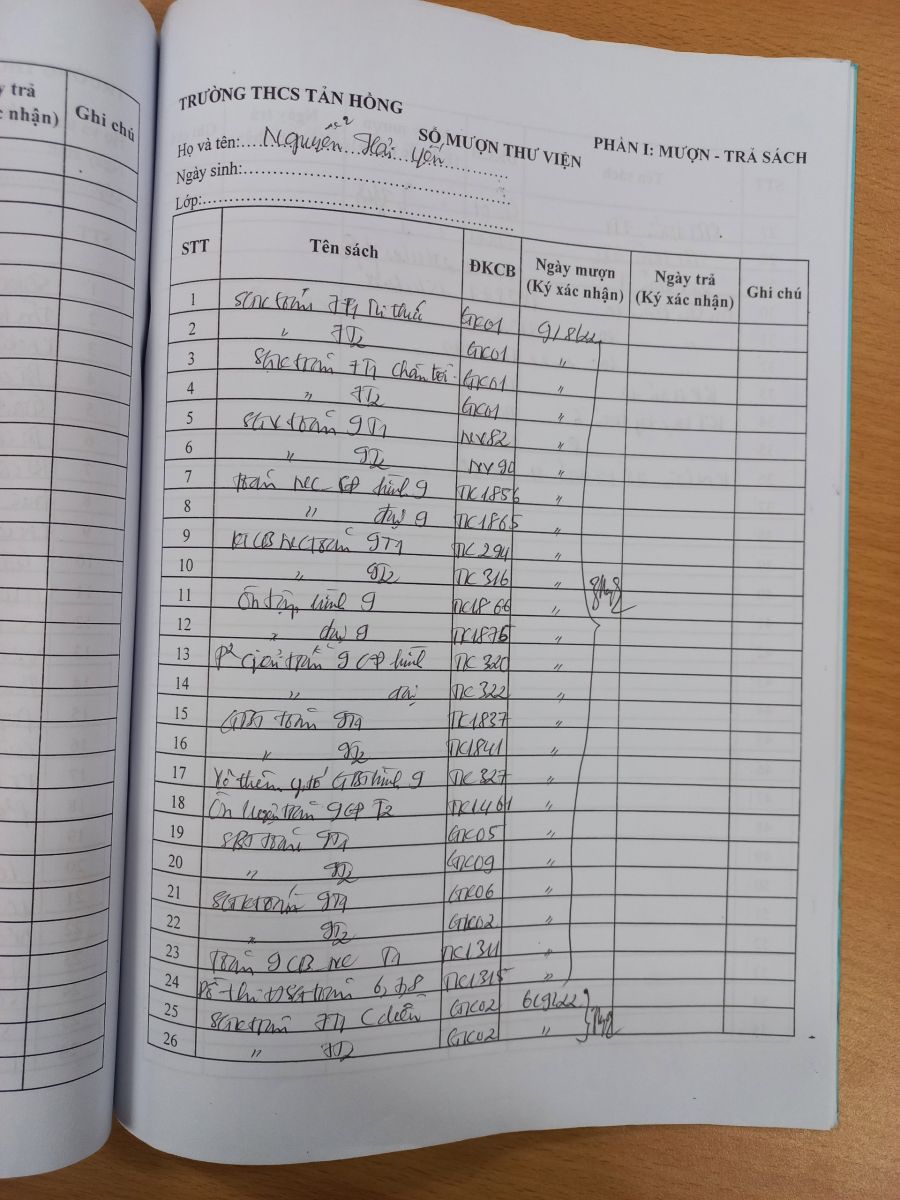 y trả
c nhận)
Ghi chú
TRƯỜNG THCS TẢN HỒNG
SỔ MƯỢN THƯ VIỆN
PHẦN I: MƯỢN - TRẢ SÁCH
Họ và tên: Nguyễn Hải Yến
Ngày sinh:
Lớp:
STT Tên sách ĐKCB Ngày mượn (Ký xác nhận) Ngày trả (Ký xác nhận) Ghi chú
1 SGK toán 7T1 GK01 9/8/22
2 " 7T2 GK01 "
3 SGK toán 7T1 chân trời GK01 "
4 " 7T2 GK01 "
5 SGV toán 9T1 NV82 "
6 " 9T2 NV90 "
7 Toán NC_CĐ hình 9 TK1856 "
8 " đại 9 TK1865 "
9 KTCB NC toán 9T1 TK294 "
10 " 9T2 TK316 "
11 Ôn tập hình 9 TK1866 "
12 " đại 9 TK1875 "
13 P² giải toán 9 CĐ hình TK320 "
14 " đại TK322 "
15 GBT toán 9T1 TK1837 "
16 " 9T2 TK1841 "
17 Vẽ thêm y.tố GBT hình 9 TK327 "
18 Ôn luyện toán 9 T2 TK1461 "
19 SBT toán 9T1 GK05 "
20 " 9T2 GK09 "
21 SGK toán 9T1 GK06 "
22 " 9T2 GK02 "
23 Toán 9 CB_NC T1 TK1311 "
24 toán 6,7,8 TK1315 "
25 SGK toán 7T1 C diều GK02 6/9/22
26 " 7T2 GK02 "